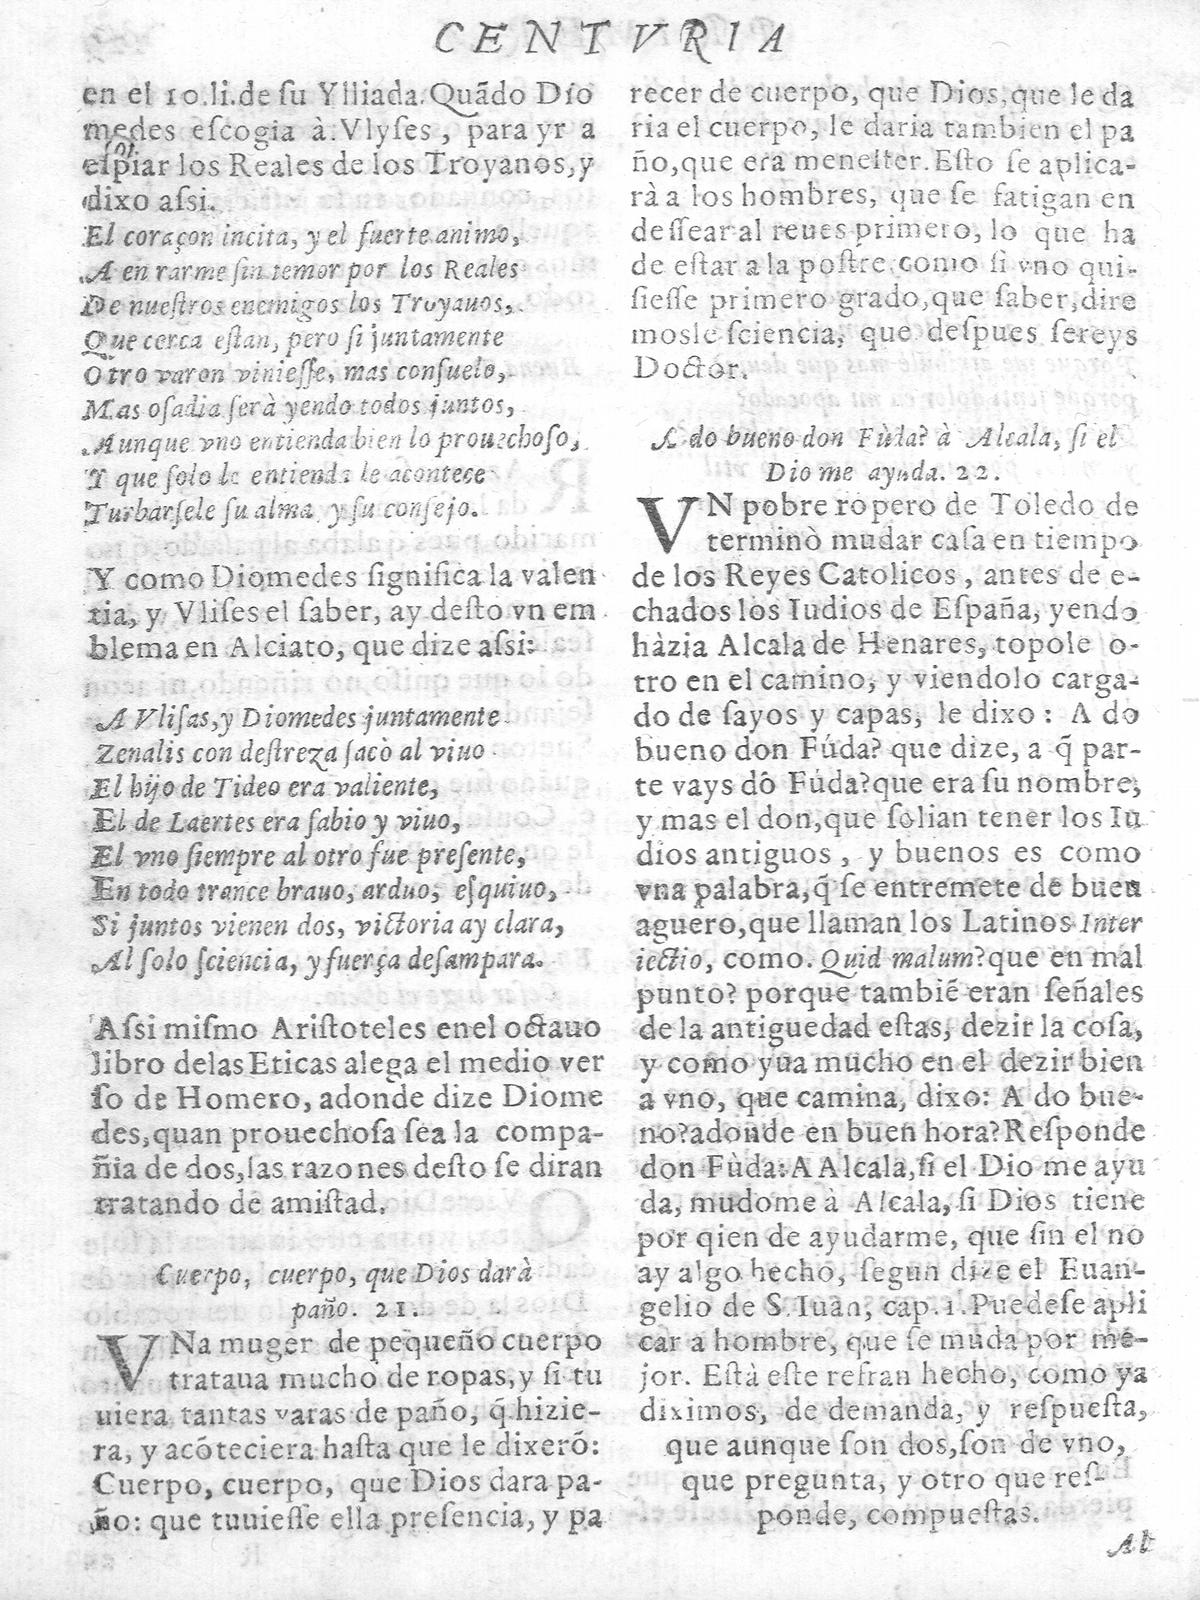 CENTVRIA
en el 10.li.de ſu Ylliada.Quãdo Dio
medes eſcogia à Vlyſes, para yr a
eſpiar los Reales de los Troyanos,y
dixo aſsi.
El coraçon incita, y el fuerte animo,
A en rarme ſin temor por los Reales
De nueſtros enemigos los Troyanos,
Que cerca eſtan, pero ſi juntamente
Otro varon vinieſſe, mas conſuelo,
Mas oſadia ſerà yendo todos juntos,
Aunque vno entienda bien lo prouechoſo,
Y que ſolo lo entienda le acontece
Turbarſele ſu alma y ſu conſejo.
Y como Diomedes ſignifica la valen
tia, y Vliſes el ſaber, ay deſto vn em
blema en Alciato, que dize aſsi:
A Vliſas,y Diomedes juntamente
Zenalis con deſtreza ſacò al viuo
El hijo de Tideo era valiente,
El de Laertes era ſabio y viuo,
El vno ſiempre al otro fue preſente,
En todo trance brauo, arduo, eſquiuo,
Si juntos vienen dos, victoria ay clara,
Al ſolo ſciencia, y fuerça deſampara.
Aſsi miſmo Ariſtoteles enel octauo
libro delas Eticas alega el medio ver
ſo de Homero, adonde dize Diome
des,quan prouechoſa ſea la compa-
ñia de dos,las razones deſto ſe diran
tratando de amiſtad.
Cuerpo, cuerpo, que Dios darà
paño. 21.
VNa muger de pequeño cuerpo
trataua mucho de ropas,y ſi tu
uiera tantas varas de paño, q̃ hizie-
ra, y acõteciera haſta que le dixerõ:
Cuerpo, cuerpo, que Dios dara pa-
ño: que tuuieſſe ella preſencia, y pa
recer de cuerpo, que Dios,que le da
ria el cuerpo, le daria tambien el pa
ño,que era meneſter.Eſto ſe aplica-
rà a los hombres, que ſe fatigan en
deſſear al reues primero, lo que ha
de eſtar a la poſtre,como ſi vno qui-
ſieſſe primero grado,que ſaber,dire
mosle ſciencia, que deſpues ſereys
Doctor.
A do bueno don Fùda? à Alcala, ſi el
Dio me ayuda. 22.
VN pobre ropero de Toledo de
terminò mudar caſa en tiempo
de los Reyes Catolicos, antes de e-
chados los Iudios de Eſpaña, yendo
hàzia Alcala de Henares, topole o-
tro en el camino, y viendolo carga-
do de ſayos y capas, le dixo: A do
bueno don Fúda? que dize, a q̃ par-
te vays dõ Fúda?que era ſu nombre,
y mas el don,que ſolian tener los Iu
dios antiguos, y buenos es como
vna palabra,q̃ ſe entremete de buen
aguero,que llaman los Latinos Inter
iectio, como. Quid malum?que en mal
punto? porque tambiẽ eran ſeñales
de la antiguedad eſtas, dezir la coſa,
y como yua mucho en el dezir bien
a vno, que camina, dixo: A do bue-
no?adonde en buen hora?Reſponde
don Fùda:A Alcala,ſi el Dio me ayu
da, mudome à Alcala,ſi Dios tiene
por qien de ayudarme, que ſin el no
ay algo hecho, ſegun dize el Euan-
gelio de S.Iuan, cap.1.Puedeſe apli
car a hombre, que ſe muda por me-
jor. Eſtà eſte refran hecho, como ya
diximos, de demanda, y reſpueſta,
que aunque ſon dos,ſon de vno,
que pregunta, y otro que reſ-
ponde, compueſtas.
Al